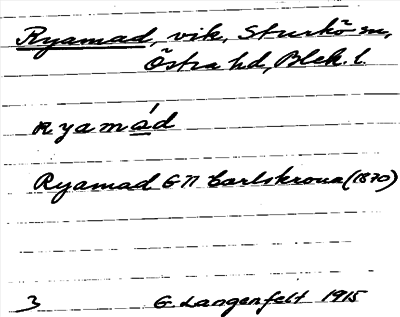 Ryamad, vik, Sturkö sn,
Östra hd, Blek. l.
Ryamád
Ryamad GN Carlskrona (1870)
3 G. Langenfelt 1915